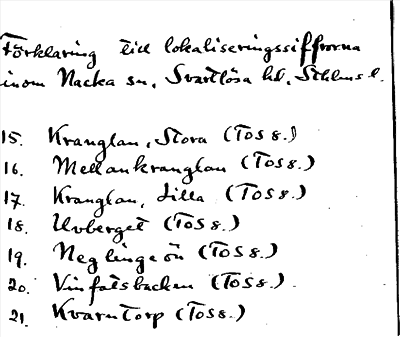 Förklaring till lokaliseringssiffrorna
inom Nacka sn, Svartlösa hd, Sthlms l.
15. Kranglan, Stora (TOS 8.)
16. Mellankranglan (TOS 8.)
17. Kranglan, Lilla (TOS 8.)
18. Uvberget (TOS 8.)
19. Neglingeön (TOS 8.)
20. Vinfatsbacken (TOS 8.).
21. Kvarntorp (TOS 8.)